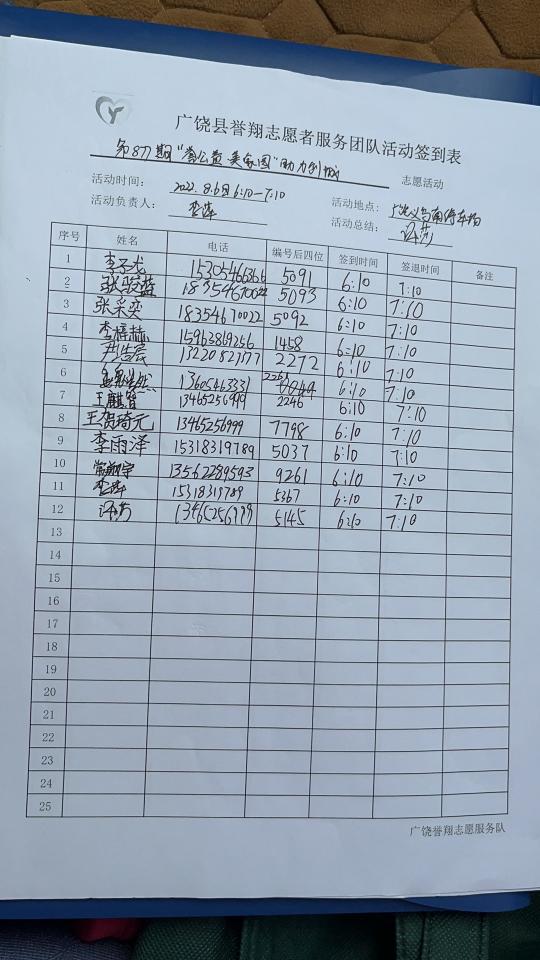 广饶县誉翔志愿者服务团队活动签到表
第877期"营公益 美家园"助力创城 志愿活动
活动时间： 2022.8.6日 6:10-7:10 活动地点：
活动负责人： 李萍 活动总结：
序号 姓名 电话 编号后四位 签到时间 签退时间 备注
1 李子龙 5091 6:10 7:10
2 5093 6:10 7:10
3 张采奕 18354670022 5092 6:10 7:10
4 李梓赫 15963819256 1458 6:10 7:10
5 尹浩宸 13220827177 2272 6:10 7:10
6 13605463331 6:10 7:10
7 王麒 13465256999 2246 6:10 7:10
8 王贺琦元 13465256999 7798 6:10 7:10
9 李雨泽 15318319789 5037 6:10 7:10
10 常翔宇 13562289593 9261 6:10 7:10
11 李萍 15318319789 5367 6:10 7:10
12 13465256999 5145 6:10 7:10
13
14
15
16
17
18
19
20
21
22
23
24
25
广饶誉翔志愿服务队